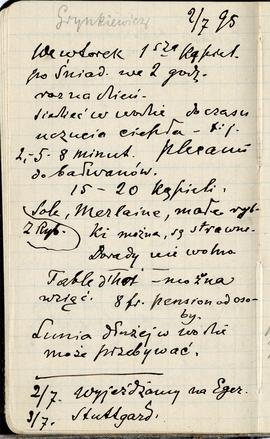 Grynkiewicz
2/7 95
We wtorek 1sza kąpiel.
po śniad. we 2 godz.
raz na dzień.
siedzieć w wodzie do czasu
uczucia ciepła – t.j.
2,–5–8 minut. plecami
do bałwanów.
15–20 kąpieli.
Sole, Merlaine, małe ryb-
ki można, są strawne.
2 Ryb.
Dorady nie wolno
Table d'hôt – można
wziąć. 8 fr. pension od oso-
by.
Lunia dłużej w wodzie
może przebywać.
2/7. Wyjeżdżamy na Eger.
3/7. Stuttgard.